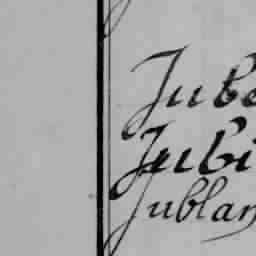 Jube
Jubi
Jublan